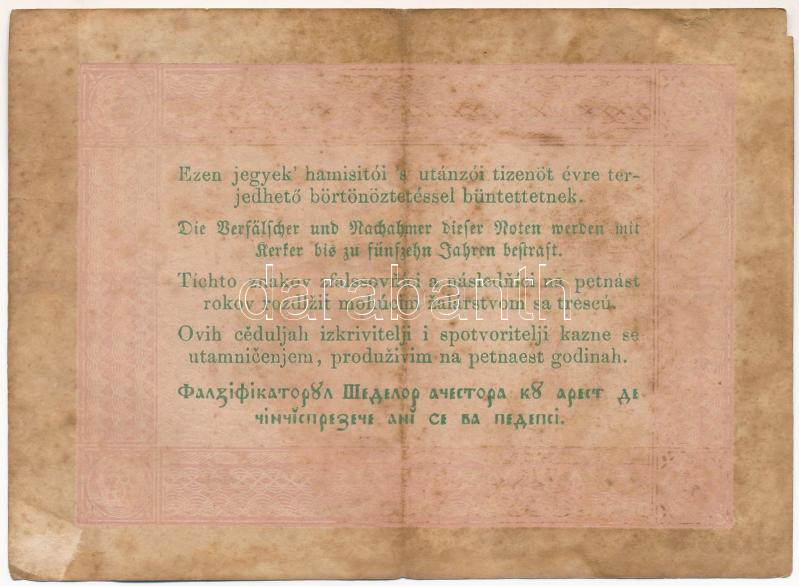 Ezen jegyek' hamisitói 's utánzói tizenöt évre ter-
jedhető börtönöztetéssel büntettetnek.
Die Verfälscher und Nachahmer dieser Noten werden mit
Kerker bis zu fünfzehn Jahren bestraft.
Tíchto znakov sfalšovaňci a násladňíci na petnást
rokov rozdĺžiť mohúcim žalárstvom sa trescú.
Ovih cĕduljah izkrivitelji i spotvoritelji kazne se
utamničenjem, produživim na petnaest godinah.
Фалзіфікаторȣл Шеделор ачестора кȣ арест де
чінчĭспрезече анĭ се ва педепсі.
darabanth